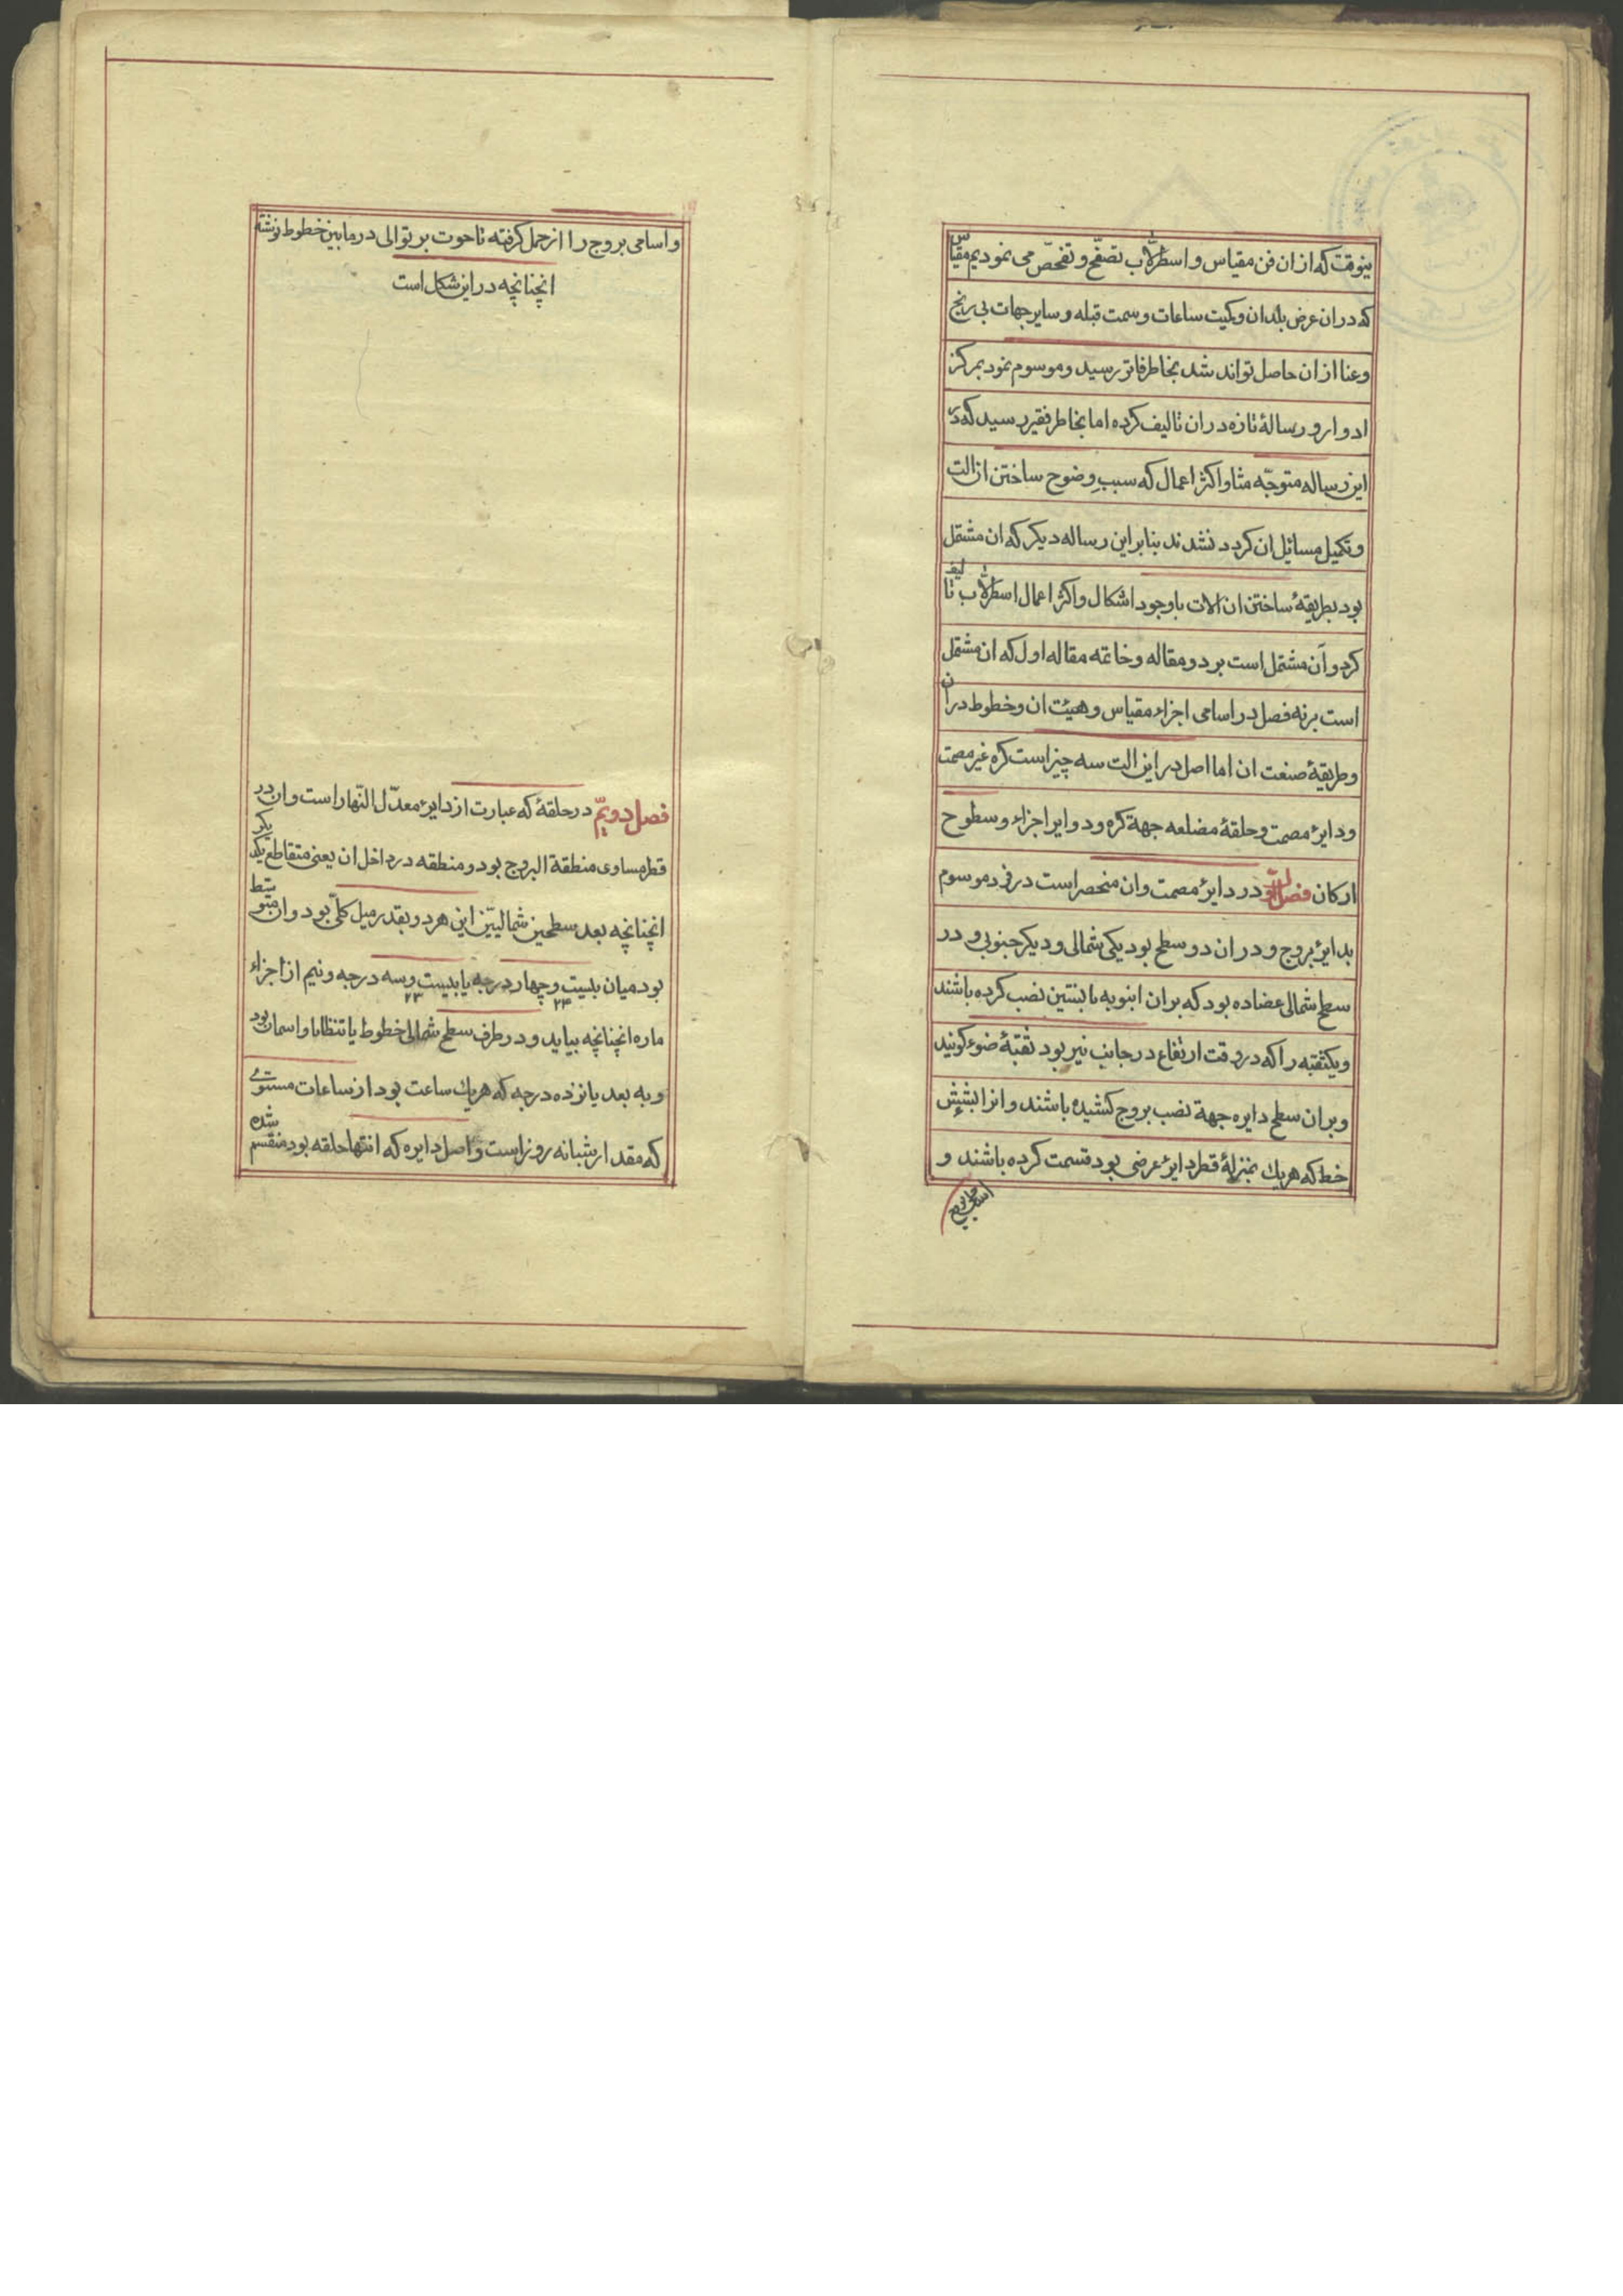 ینوقت که ازان فن مقیاس و اسطرلاب تصفّح و تفحّص می نمودیم مقیاس
که دران عرض بلدان وکمیت ساعات وسمت قبله و سایر جهات بی رنج
وعنا ازان حاصل تواند شد بخاطر فاتر رسید و موسوم نمود بمرکز
ادوار و رسالهٔ تازه دران تالیف کرده اما بخاطر فقیر رسید که در
این رساله متوجّه مثا و اکثر اعمال که سببِ وضوح ساختن از الت
وتکمیل مسائل ان کردد نشدند بنابراین رساله دیکر که ان مشتمل
بود بطریقهٔ ساختن ان الات باوجود اشکال و اکثر اعمال اسطرلاب تالیف
کرد و آن مشتمل است بر دو مقاله و خاتمه مقاله اول که ان مشتمل
است برنه فصل در اسامی اجزاء مقیاس و هیئت ان و خطوط دران
وطریقهٔ صنعت ان اما اصل در این الت سه چیز است کره غیر مصمت
ودایرهٔ مصمت و حلقهٔ مضلعه جهة کره و دوایر اجزاء و سطوح
ارکان فصل اوّل در دایرهٔ مصمت وان منحصر است در فرد موسوم
بدایرهٔ بروج و دران دو سطح بود یکی شمالی و دیکر جنوبی و در
سطح شمالی عضاده بود که بران انبوبه با لبنتین نصب کرده باشند
ویکثقبه را که در وقت ارتفاع در جانب نیر بود ثقبهٔ ضوء کویند
وبران سطح دایره جهة نصب بروج کشیده باشند و انرا بشش
خط که هریك بمنزلهٔ قطر دایرهٔ عرضی بود قسمت کرده باشند و
و اسامی بروج را از حمل کرفته تا حوت بر توالی در مابین خطوط نوشته
انچنانچه در این شکل است
فصل دویمّ در حلقهٔ که عبارت از دایرهٔ معدّل النّهار است وان در
قطر مساوی منطقة البروج بود و منطقه در داخل ان یعنی متقاطع یکدیکر
انچنانچه بعد سطحین شمالیّین این هر دو بقدر میل کلّی بود وان متوسط
بود میان بلبیت وچهار درجه یا بیست وسه درجه ونیم از اجزاء
۲۴ ۲۳
ماره انچنانچه بیاید و در طرف سطح شمالی خطوط یا تنظاما و اسمان بود
و به بعد پانزده درجه که هریك ساعت بود از ساعات مستوی
که مقدار شبانه روز است و اصل دایره که انتها حلقه بود منقسم شده